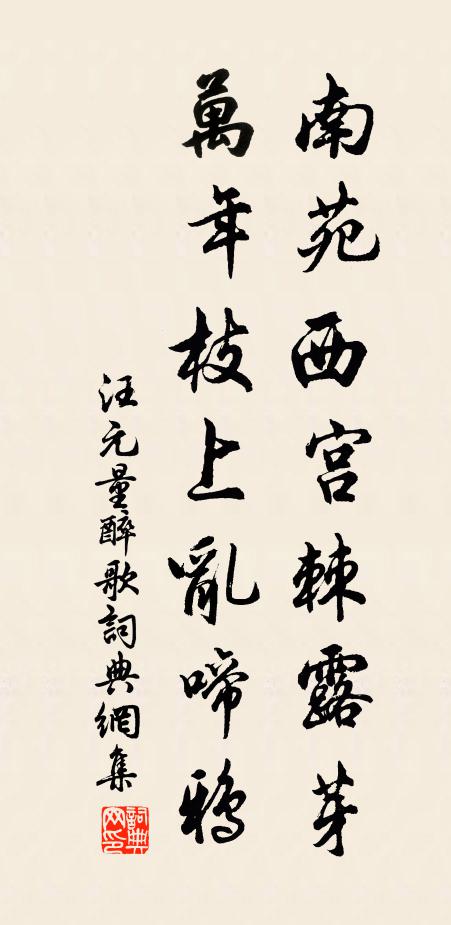 南苑西宫棘露芽
萬年枝上亂啼鴉
汪元量醉歌詞典網集
詞典網印